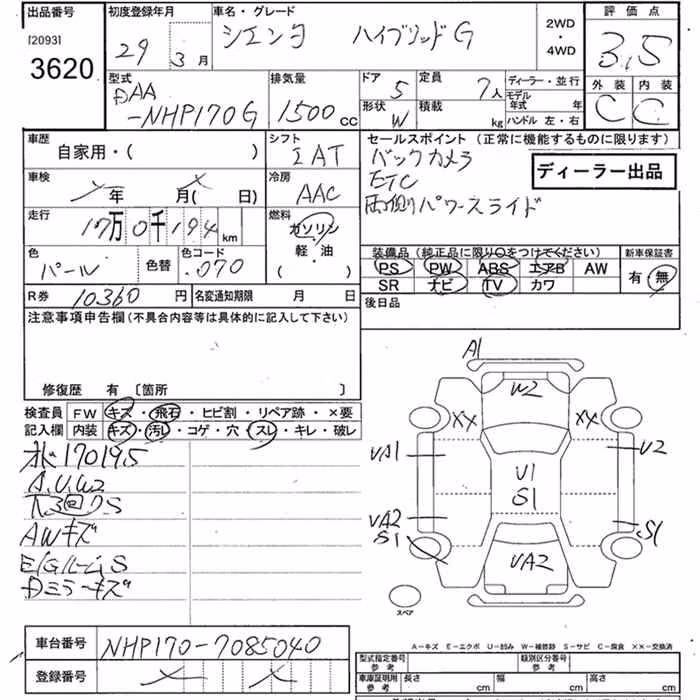 出品番号 初度登録年月 車名・グレード 評価点
[2093] 29年 3月 シエンタ ハイブリッドG 2WD・4WD 3.5
3620
型式 排気量 ドア 5 定員 7人 ディーラー・並行 外装 内装
DAA-NHP170G 1500cc 形状 W 積載 kg モデル年式 年 C C
ハンドル 左・右
車歴 シフト セールスポイント(正常に機能するものに限ります)
自家用・( ) IAT バックカメラ
車検 年 月( 日) 冷房 AAC ETC ディーラー出品
両側パワースライド
走行 17万0千194km 燃料 ガソリン・軽・油( )
色 パール 色替 色コード 070
装備品(純正品に限り○をつけてください) 新車保証書
PS PW ABS エアB AW 有・無
SR ナビ TV カワ
R券 10360円 名変通知期限 月 日 後日品
注意事項申告欄(不具合内容等は具体的に記入して下さい)
修復歴 有 〔箇所 〕
検査員 FW キズ・飛石・ヒビ割・リペア跡・×要
記入欄 内装 キズ・汚レ・コゲ・穴・スレ・キレ・破レ
170195
A.U.W2
S
AWキズ
E/GルームS
Dミラーキズ
A1
W2
XX XX
UA1 U2
U1
S1
UA2 S1
S1
UA2
スペア
車台番号 NHP170-7085040
登録番号
A－キズ E－エクボ U－凹み W－補修跡 S－サビ C－腐食 XX－交換済
型式指定番号 参考 類別区分番号 参考
車庫証明用 参考 長さ cm 幅 cm 高さ cm